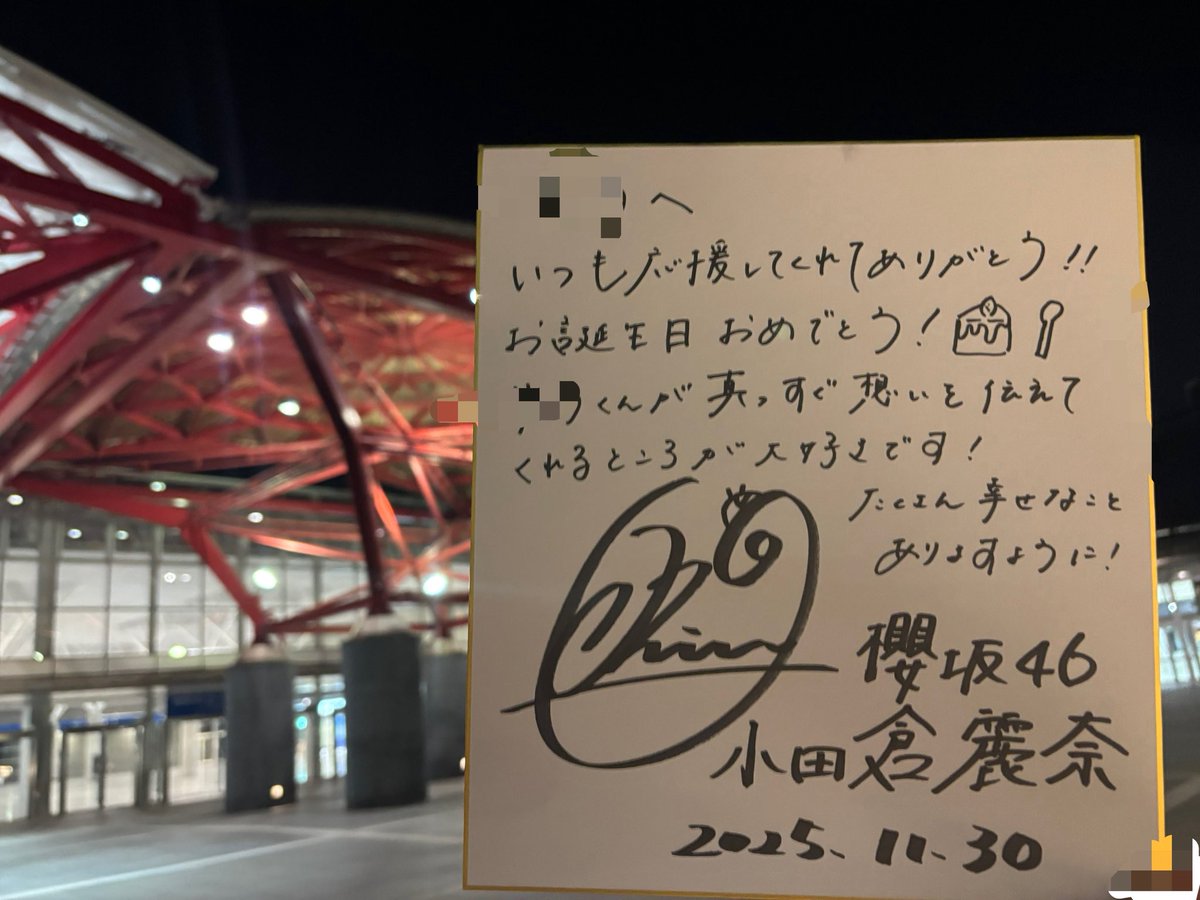 へ
いつも応援してくれてありがとう!!
お誕生日おめでとう!
くんが真っすぐ想いを伝えて
くれるところが大好きです!
たくさん幸せなこと
ありますように!
櫻坂46
小田倉麗奈
2025.11.30